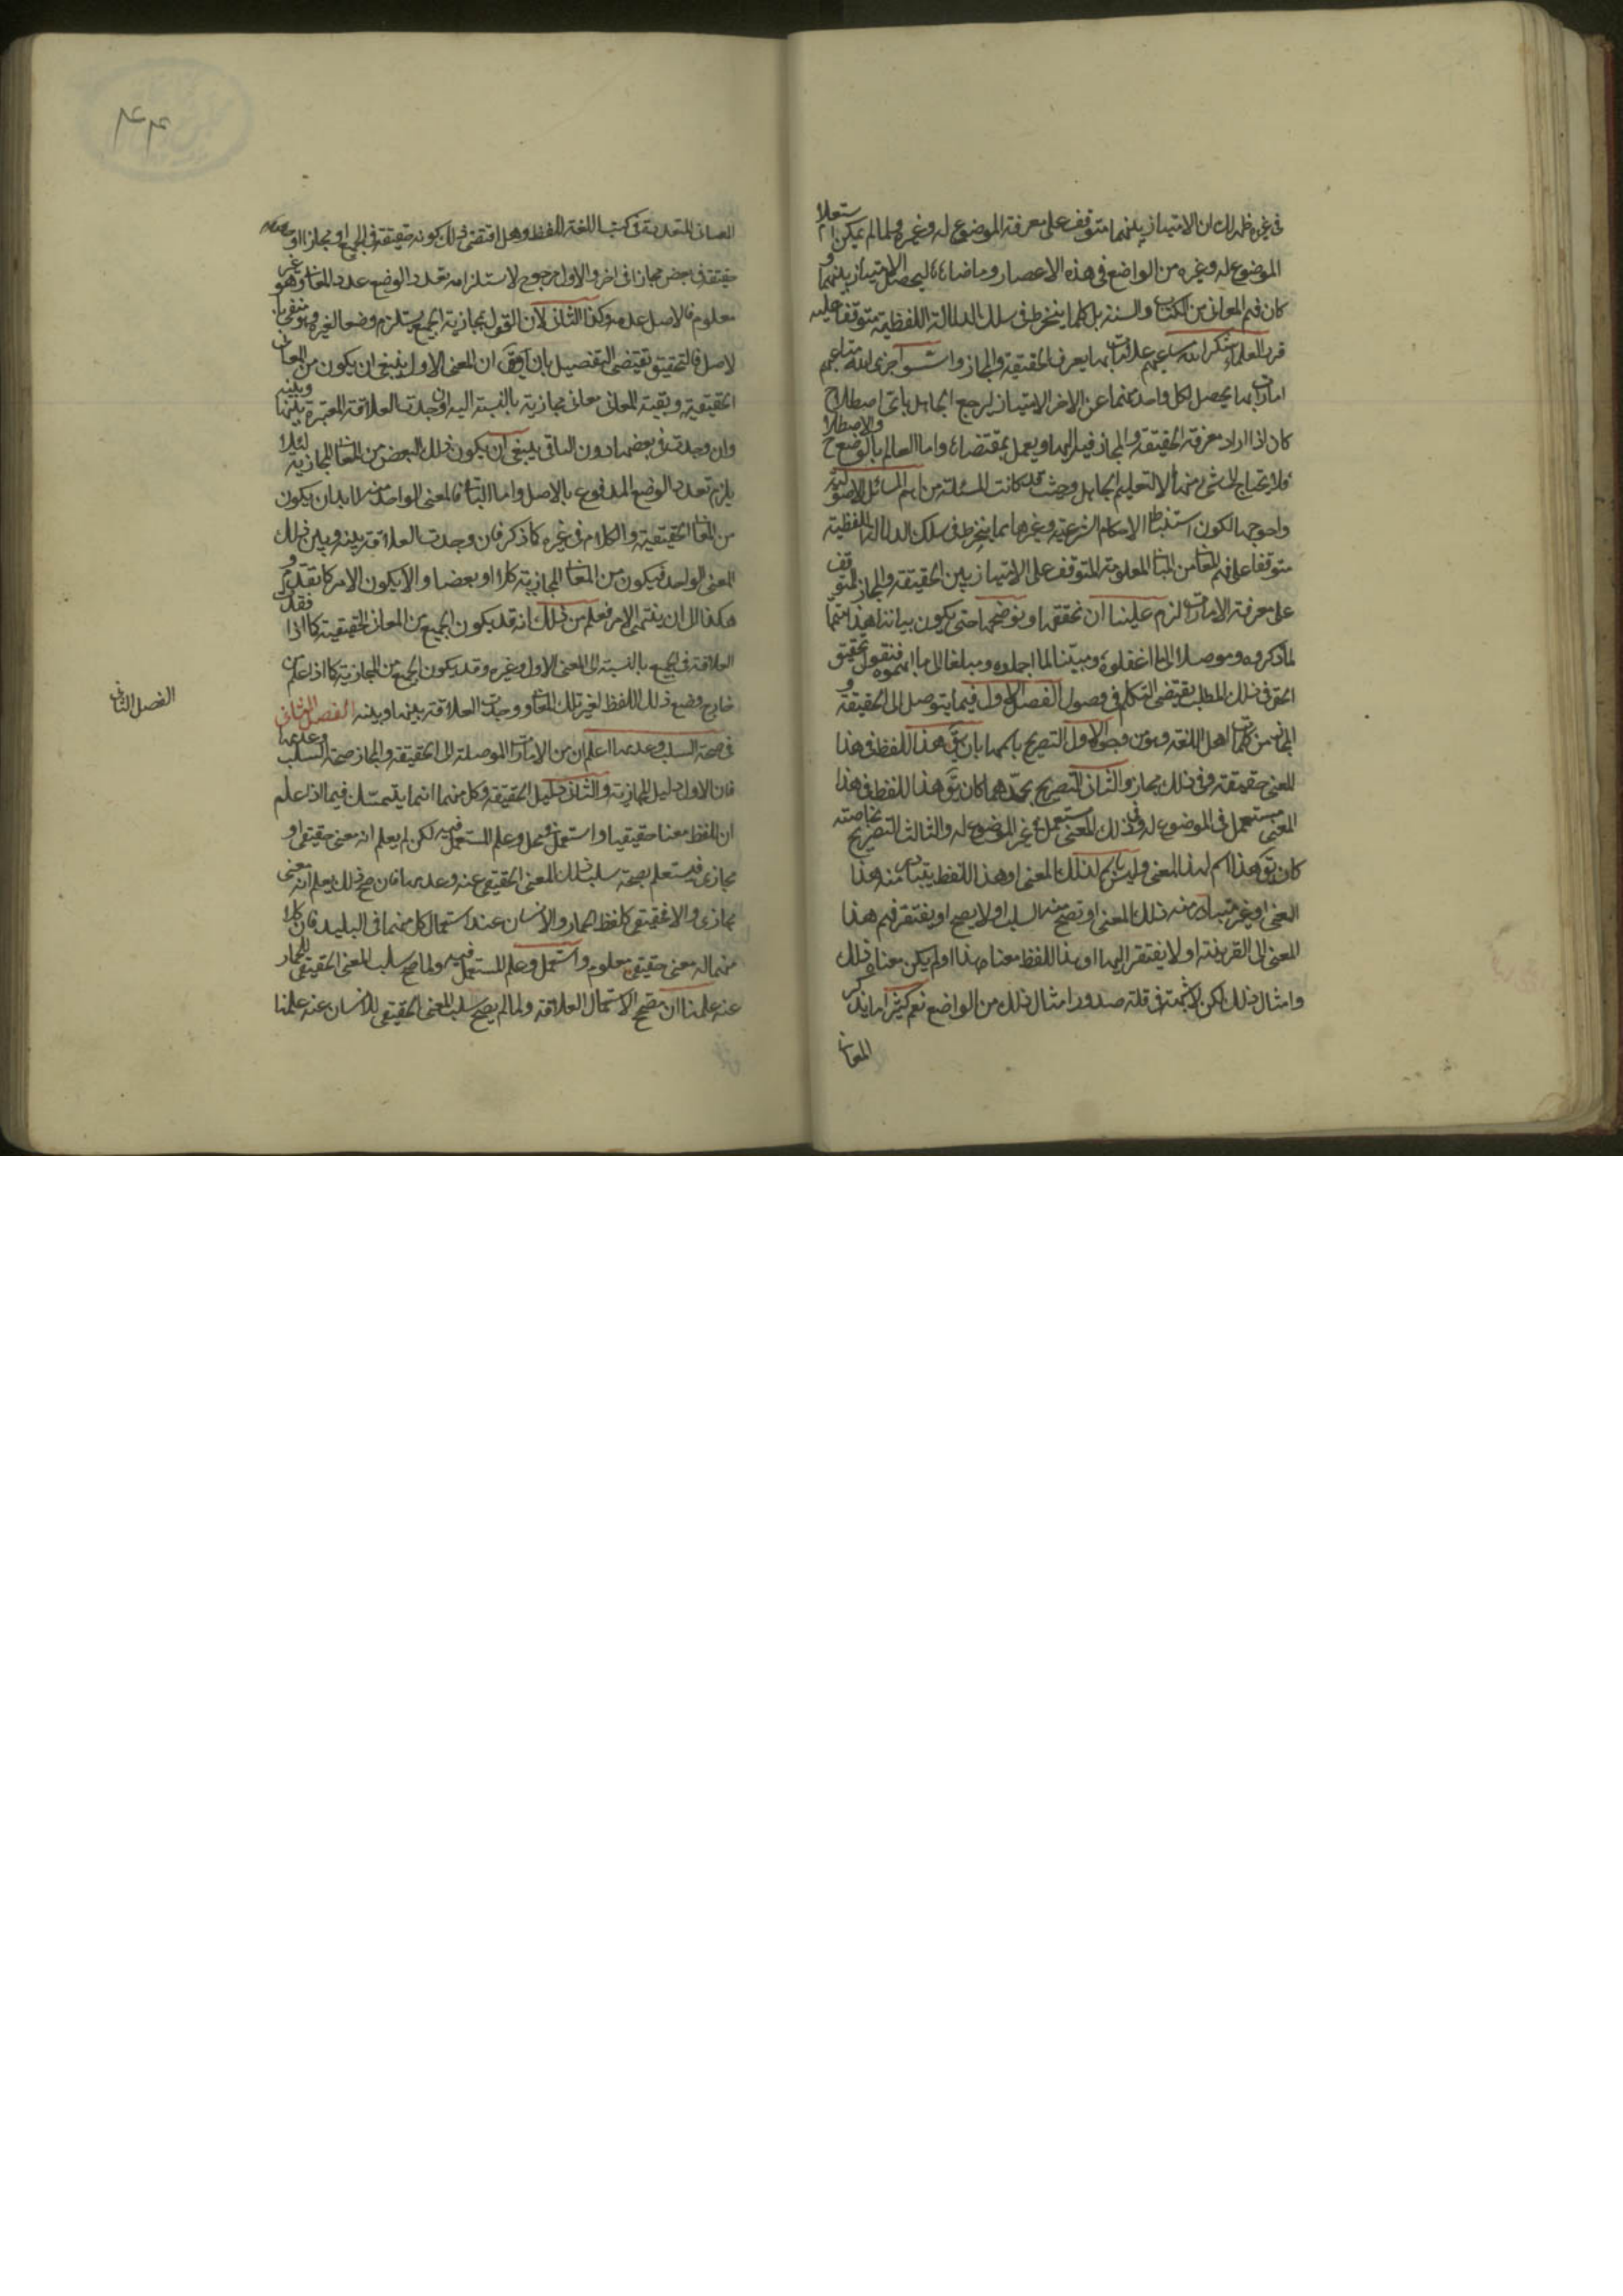 في غيره ظهر لك ان الامتياز بينهما متوقف على معرفة الموضوع له وغيره ولما لم يمكن استعلام
الموضوع له وغيره من الواضع في هذه الاعصار وما ضاهاها ليحصل الامتياز بينهما و
كان فهم المعاني من الكتاب والسنة بل كلما ينخرط في سلك الدلالة اللفظية متوقفا عليه
قرر العلماء شكر الله سعيهم علامات بها يعرف الحقيقة والمجاز واسسوا جزى الله متاعبهم
امارات بها يحصل لكل واحد منهما عن الاخر الامتياز ليرجع الجاهل باي اصطلاح
كان اذا اراد معرفة الحقيقة والمجاز فيه اليها ويعمل بمقتضاها واما العالم بالوضع والاصطلاح
فلا يحتاج الى شيء منها الا لتعليم الجاهل وحيث قد كانت المسئلة من اهم المسائل الاصولية
واحوجها لكون استنباط الاحكام الشرعية وغيرها مما ينخرط في سلك الدلالات اللفظية
متوقفا على فهم المعاني من المباني المعلومة المتوقف على الامتياز بين الحقيقة والمجاز المتوقف
على معرفة الامارات لزم علينا ان نحققها ونوضحها حتى يكون بياننا هذا متمما
لما ذكروه وموصلا الى ما اغفلوه ومبينا لما اجملوه ومبلغا الى ما ابهموه فنقول تحقيق
الحق في ذلك المطلب يقتضي التكلم في فصول الفصل الاول فيما يتوصل الى الحقيقة و
المجاز من كلمات اهل اللغة وهو من وجوه الاول التصريح باسمهما بان يق هذا اللفظ في هذا
المعنى حقيقة وفي ذلك مجاز والثاني التصريح بحدهما كان يق هذا اللفظ في هذا
المعنى مستعمل في الموضوع له وفي ذلك المعنى مستعمل في غير الموضوع له والثالث التصريح بخاصته
كان يق هذا اسم لهذا المعنى وليس باسم لذلك المعنى او هذا اللفظ يتبادر منه هذا
المعنى او غير متبادر منه ذلك المعنى او تصح منه السلب او لا يصح او يفتقر فهم هذا
المعنى الى القرينة او لا يفتقر اليها او هذا اللفظ معناه هذا او لم يكن معناه ذلك
وامثال ذلك لكن لا شبهة في قلة صدور امثال ذلك من الواضع نعم كثيرا ما يذكر
المعاني
٤٤
المعاني المتعددة في كتب اللغة للفظ وهل اقتضى ذلك كونه حقيقة في الجميع او مجازا او
حقيقة في بعض مجازا في اخر والاول مرجوح لاستلزامه تعدد الوضع عدد المعاني وهو غير
معلوم فالاصل عدمه وكذا الثاني لان القول بمجازية الجميع يستلزم وضعا لغيره وهو منفي با
لاصل فالتحقيق يقتضي التفصيل بان يق ان المعنى الاول ينبغي ان يكون من المعاني
الحقيقية وبقية المعاني معاني مجازية بالنسبة اليه ان وجدت العلاقة المعتبرة بينها وبينه
وان وجدت في بعضها دون الباقي ينبغي ان يكون ذلك البعض من المعاني المجازية لئلا
يلزم تعدد الوضع المدفوع بالاصل واما الباقي فالمعنى الواحد منه لابد ان يكون
من المعاني الحقيقية والكلام في غيره كما ذكر فان وجدت العلاقة بينه وبين ذلك
المعنى الواحد فيكون من المعاني المجازية كلا او بعضا والا يكون الامر كما تقدم و
هكذا الى ان ينتهي الامر فعلم من ذلك انه قد يكون الجميع من المعاني الحقيقية كما اذا فقد
العلاقة في الجميع بالنسبة الى المعنى الاول وغيره وقد يكون الجميع من المجازية كما اذا علم من
خارج وضع ذلك اللفظ لغير تلك المعاني ووجدت العلاقة بينها وبينه الفصل الثاني
في صحة السلب وعدمها اعلم ان من الامارات الموصلة الى الحقيقة والمجاز صحة السلب وعدمها
فان الاول دليل المجازية والثاني دليل الحقيقة وكل منهما انما يتمسك فيما اذا علم
ان للفظ معنا حقيقيا واستعمل في محل وعلم المستعمل فيه لكن لم يعلم انه معنى حقيقي او
مجازي فيستعلم بصحة سلب ذلك المعنى الحقيقي عنه وعدمها فان صح ذلك يعلم انه معنى
مجازي والا فحقيقي كلفظ الحمار والانسان عند استعمال كل منهما في البليد فان كلا
منهما له معنى حقيقي معلوم واستعمل وعلم المستعمل فيه ولما صح سلب المعنى الحقيقي للحمار
عنه علمنا ان مصحح الاستعمال العلاقة ولما لم يصح سلب المعنى الحقيقي للانسان عنه علمنا
الفصل الثاني